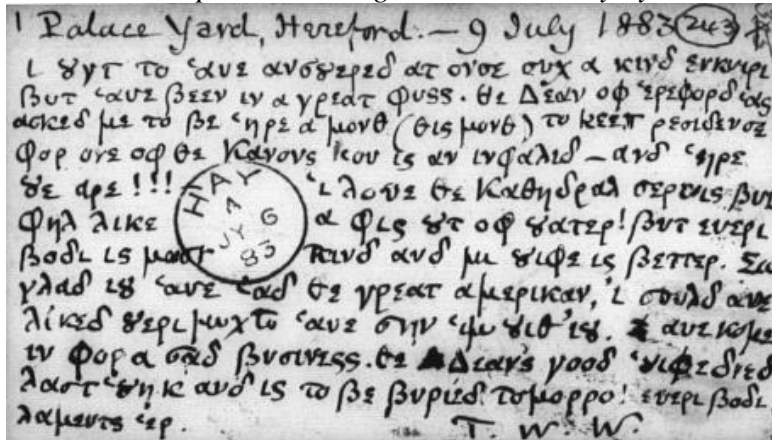 1 Palace Yard, Hereford. – 9 July 1883 243
ι ȣγτ το ‛αυε ανσȣερεδ ατ ονσε συχ α κινδ ενκυιρι
βυτ ‛αυε βεεν ιν α γρεατ φυσς. θε Δεαν οφ ‛ερεφορδ ‛ας
ασκεδ με το βε ‛ηρε α μονθ (θις μονθ) το κεεπ ρεσιδενσε
φορ ονε οφ θε Κανονς ‛ου ις αν ινφαλιδ – ανδ ‛ηρε
ȣε αρε!!! – ‛ι λουε θε Καθηδραλ σερυις βυτ
φηλ λικε α φις ȣτ οφ ȣατερ! βυτ ευερι
βοδι ις μοστ κινδ ανδ μι ȣιφε ις βεττερ. Σω
γλαδ ιȣ ‛αυε ‛αδ θε γρεατ αμερικαν, ‛ι σουλδ αυε
λικεδ ȣερι μυχ το ‛αυε σην ‛ιμ ȣιθ ‛ιȣ. αυε κομε
ιν φορ α σαδ βυσινεςς. θε Δεαν'ς γοοδ ‛υιφε διεδ
λαστ ‛ȣηκ ανδ ις το βε βυριεδ τομορρο! ευερι βοδι
λαμεντς ‛ερ. T. W. W.
HAY
A
JY 6
83